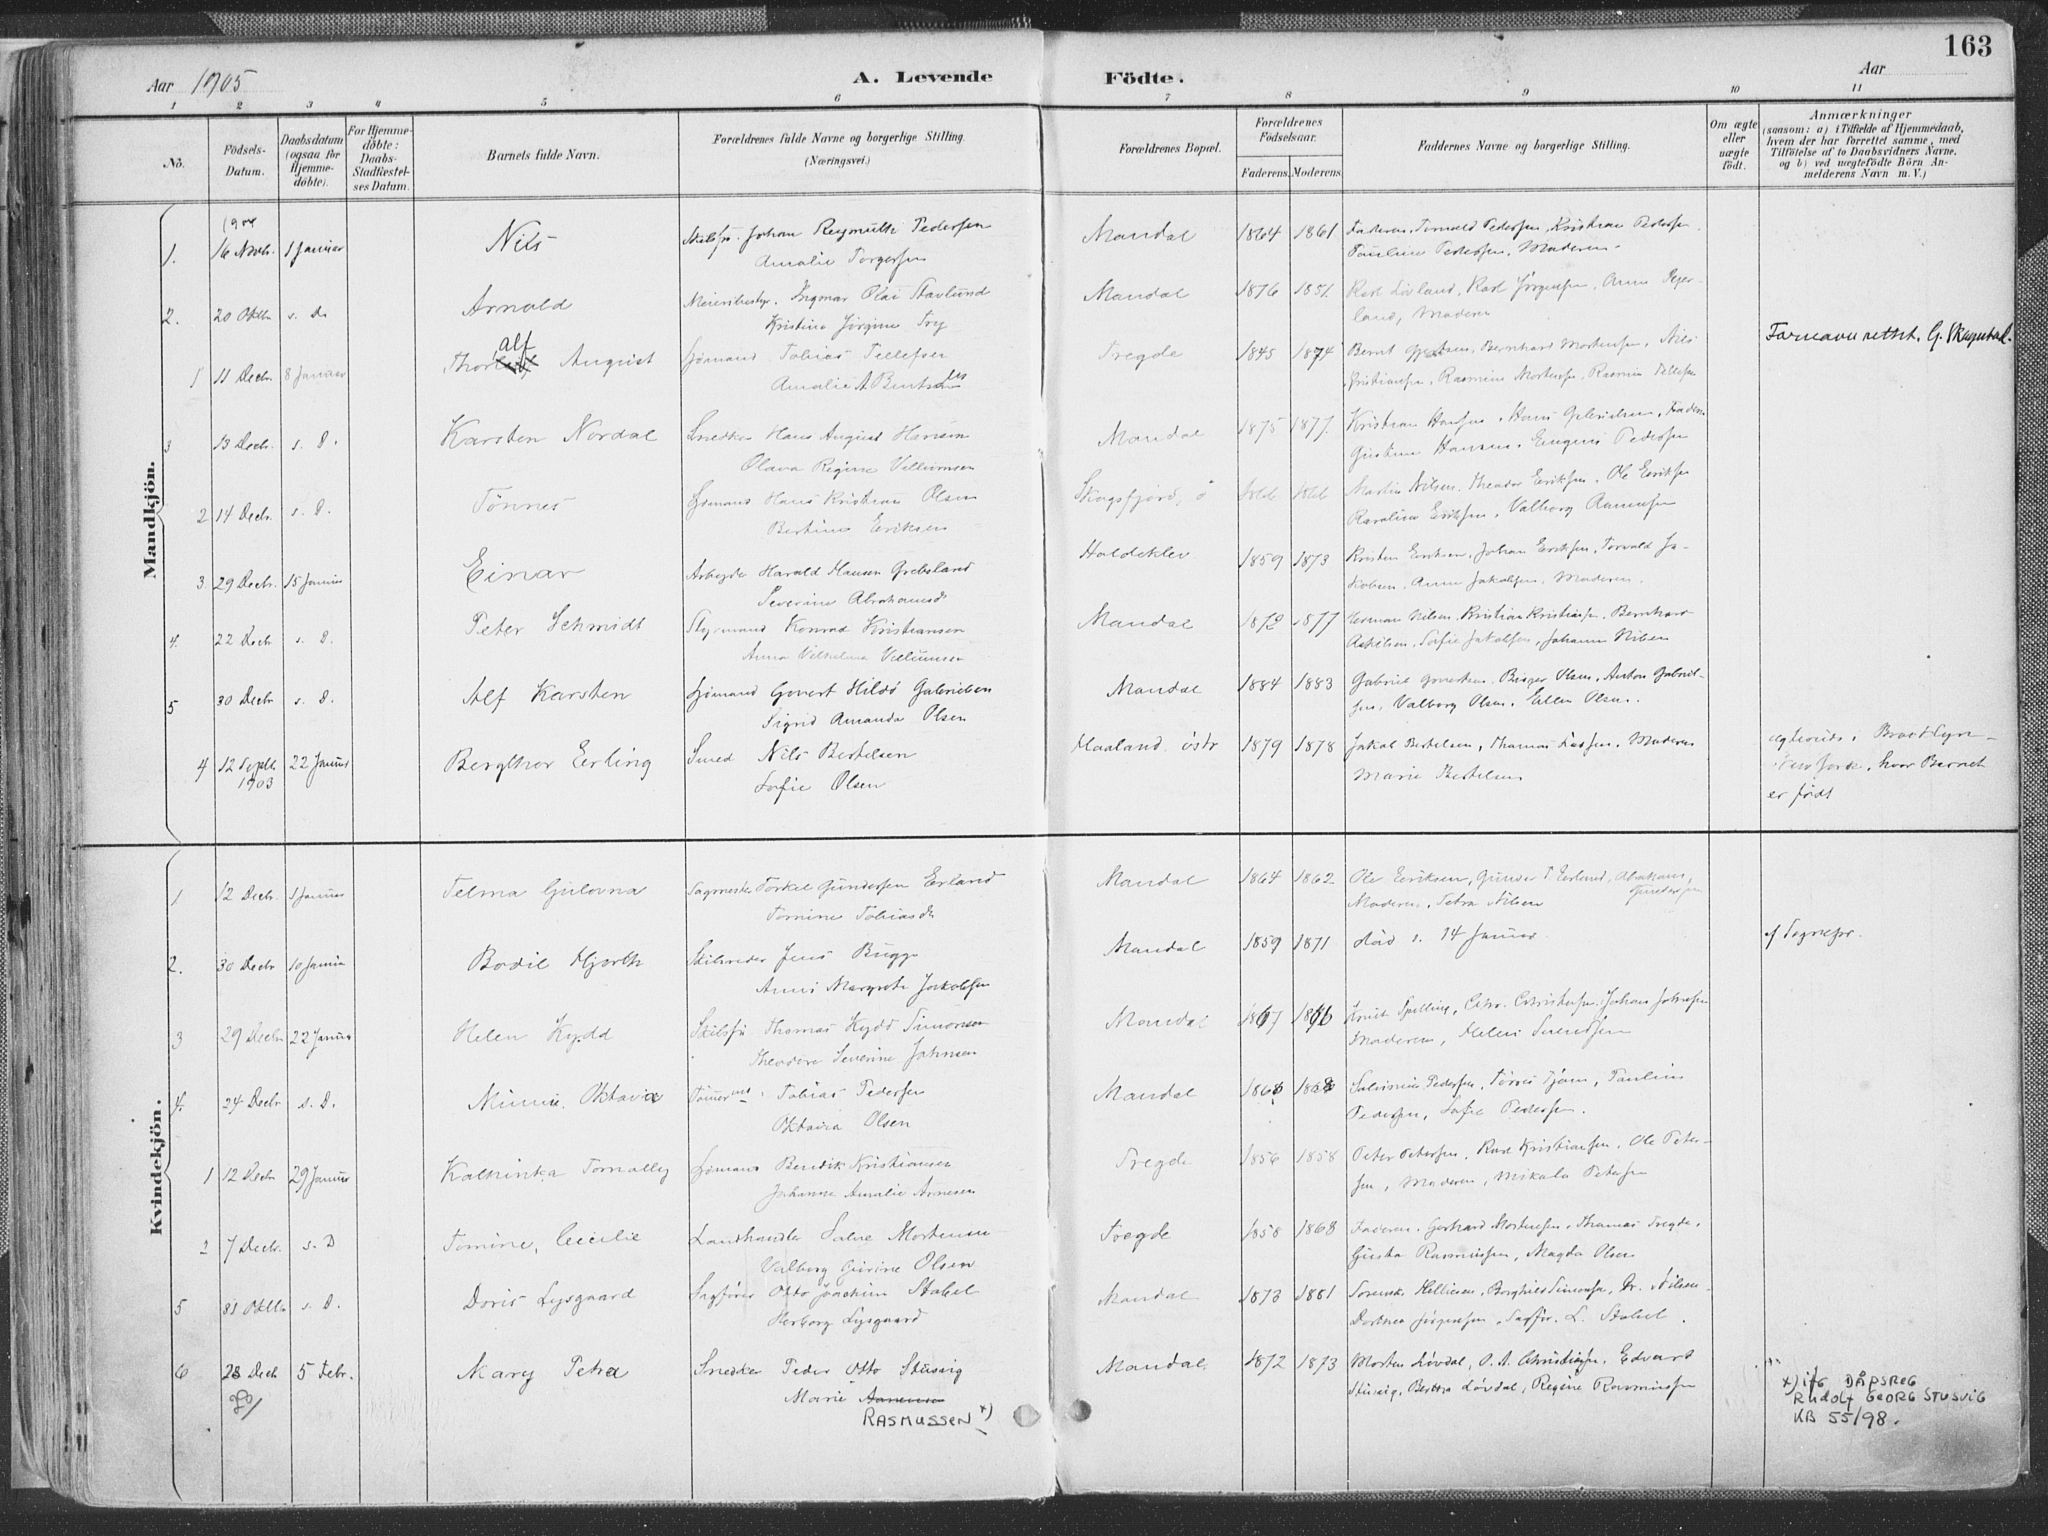 163
Aar 1905
A. Levende
Födte.
Aar
1 2 3 4 5 6 7 8 9 10 11
No.
Födsels-
Datum.
Daabsdatum
(ogsaa for
Hjemme-
döbte).
For Hjemme-
döbte:
Daabs-
Stadfæstel-
ses Datum.
Barnets fulde Navn.
Forældrenes fulde Navne og borgerlige Stilling.
(Næringsvei.)
Forældrenes Bopæl.
Forældrenes
Födselsaar.
Faderens. Moderens.
Faddernes Navne og borgerlige Stilling.
Om ægte
eller
uægte
födt.
Anmærkninger
(saasom: a) i Tilfælde af Hjemmedaab,
hvem der har forrettet samme, med
Tilföielse af to Daabsvidners Navne,
og b) ved uægtefödte Börn An-
melderens Navn m. V.)
Mandkjön.
1. 16 Novb. 1 Januar Nils Johan Reymuth Pedersen Mandal 1864 1861 Faderen, Tomald Pedersen, Kristian Pedersen
Amalie Torgersen Pauline Pedersen, Moderen
2. 20 Oktbr s. D. Arnold Meieribestyr. Ingmar Olai Stavlund Mandal 1876 1851 Karl Lovland, Karl Jörgensen, Anna
Kristine Jörgine Try land, Moderen
Farnavn rettet. G.
alf
1 11 Decbr. 8 Januar August Sjömand Tobias Tellefsen Tregde 1845 1874 Bernt, Bernhard Mortensen, Nils
Amalie A Bentsen Kristiansen, Rasmine Mortensen, Rasmus Tellefsen
3 13 Decbr. s. D. Karsten Nordal Snedker Hans August Hansen Mandal 1875 1877 Kristian Hansen, Hans Gabrielsen, Faderen
Olava Regine Villumsen Gustava Hansen, Eugenie Pedersen
2 14 Decbr. s. D. Tönnes Sjömand Hans Kristian Olsen Martin Nilsen, Theodor Eriksen, Ole Eriksen
Bertine Eriksen Karoline Eriksen, Valborg Aanensen
3 29 Decbr. 15 Januar Einar Arbeyder Harald Hansen Grebsland 1859 1873 Kristen Eriksen, Johan Eriksen, Torvald Ja-
Severine Abrahamsd kobsen, Anna Jakobsen, Moderen.
4. 22 Decb s. D. Peter Schmidt Styrmand Konrad Kristiansen Mandal 1872 1877 Herman Nilsen, Kristian Kristiansen, Bernhard
Anna Vilhelmine Villumsen Askilsen, Sofie Jakobsen, Johanne Nilsen
5 30 Decbr s. D. Alf Karsten Sjömand Govert Hildo Gabrielsen Mandal 1884 1883 Gabriel Govertsen, Birger Olsen, Anton Gabriel-
Sigrid Amanda Olsen sen, Valborg Olsen, Ellen Olsen.
4 12 Septb. 1903 22 Januar Bergthor Erling Smed Nils Bertelsen Haaland östr 1879 1878 Jakob Bertelsen, Thomas, Moderen
Sofie Olsen Marie Bertelsen
Brooklyn –
New York, hvor Barnet
er födt
Kvindekjön.
1 12 Decbr. 1 Januar Telma Gulovna Sagmester Torkel Gundersen Erland Mandal 1864 1862 Ole Eriksen, Gunder T Erland, Abraham Gundersen
Tomine Tobiasd Moderen, Petra Nilsen
2. 30 Decbr 10 Januar Bodil Hjorth Skibsreder Jens Bugge Mandal 1859 1871 14 Januar
Anna Margrete Jakobsen
3 29 Decbr 22 Januar Helen Kydd Skibsfö Thomas Kydd Simonsen Mandal Moderen, Helen Svendsen
Theodore Severine Johnsen
4. 24 Decbr s. D. Minnie Oktavia Tömmermd Tobias Pedersen Mandal Pedersen, Törres Tjom, Pauline
Oktavia Olsen Pedersen, Sofie Pedersen.
1 12 Decbr 29 Januar Kathinka Tomally Sjömand Bendik Kristiansen Tregde 1856 1858 Peter Petersen, Karl Kristiansen, Ole Peter-
Johanne Amalie Arnesen sen, Moderen, Mikala Petersen
2 7 Decbr. s. D Tomine Cecilie Landhandler Salve Mortensen Tregde 1858 1868 Faderen, Gerhard Mortensen, Thomas Tregde,
Valborg Gurine Olsen Gusta Rasmussen, Magda Olsen
5 31 Oktb s. D. Doris Lysgaard Sagförer Otto Joachim Stabel Mandal 1873 1881 Helliesen, Borghild Simonsen, Dr. Nilsen
Herborg Lysgaard Dorthea Jörgensen, Sagför. L. Stabel.
6 28 Decb 5 Febr. Mary Petra Snedker Peder Otto Stusvig Mandal 1872 1873 Morten Lövdal, O. A. Christiansen, Edvart
Marie Aanensen Stusvig, Bertha Lövdal, Regine Rasmussen
RASMUSSEN x)
x) ifg DÅPSREG
Rudolf GEORG STUSVIG
KB 55/98.